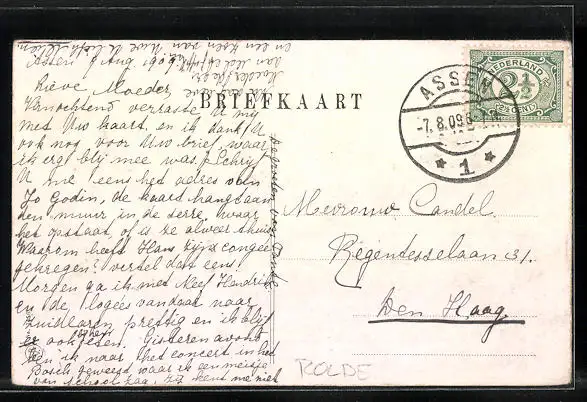 Assen 9 Aug 1909
Lieve Moeder,
Vanochtend verraste U mij
met Uw kaart, en ik dank U
ook nog voor Uw brief, waar
ik erg blij mee was. Schrijf
U me eens het adres van
Jo Godin, de kaard hangt aan
den muur, in de serre, waar
het opstaat, of is ze alweer thuis
Waarom heeft Hans zijn congé
gekregen? vertel dat eens!
Morgen ga ik met Neef Hendrik
en de logées vandaar naar
Zuidlaren prettig en ik blijf
er ook eten. Gisteren avond
ben ik naar het concert in het
Bosch geweest waar ik een meisje
van school zag, ze kent me niet
de groeten van Tante
BRIEFKAART
NEDERLAND
2½
(2½ CENT)
ASSEN
-7.8.09.6
1
Mevrouw Candel.
Regentesselaan 31.
Den Haag
ROLDE